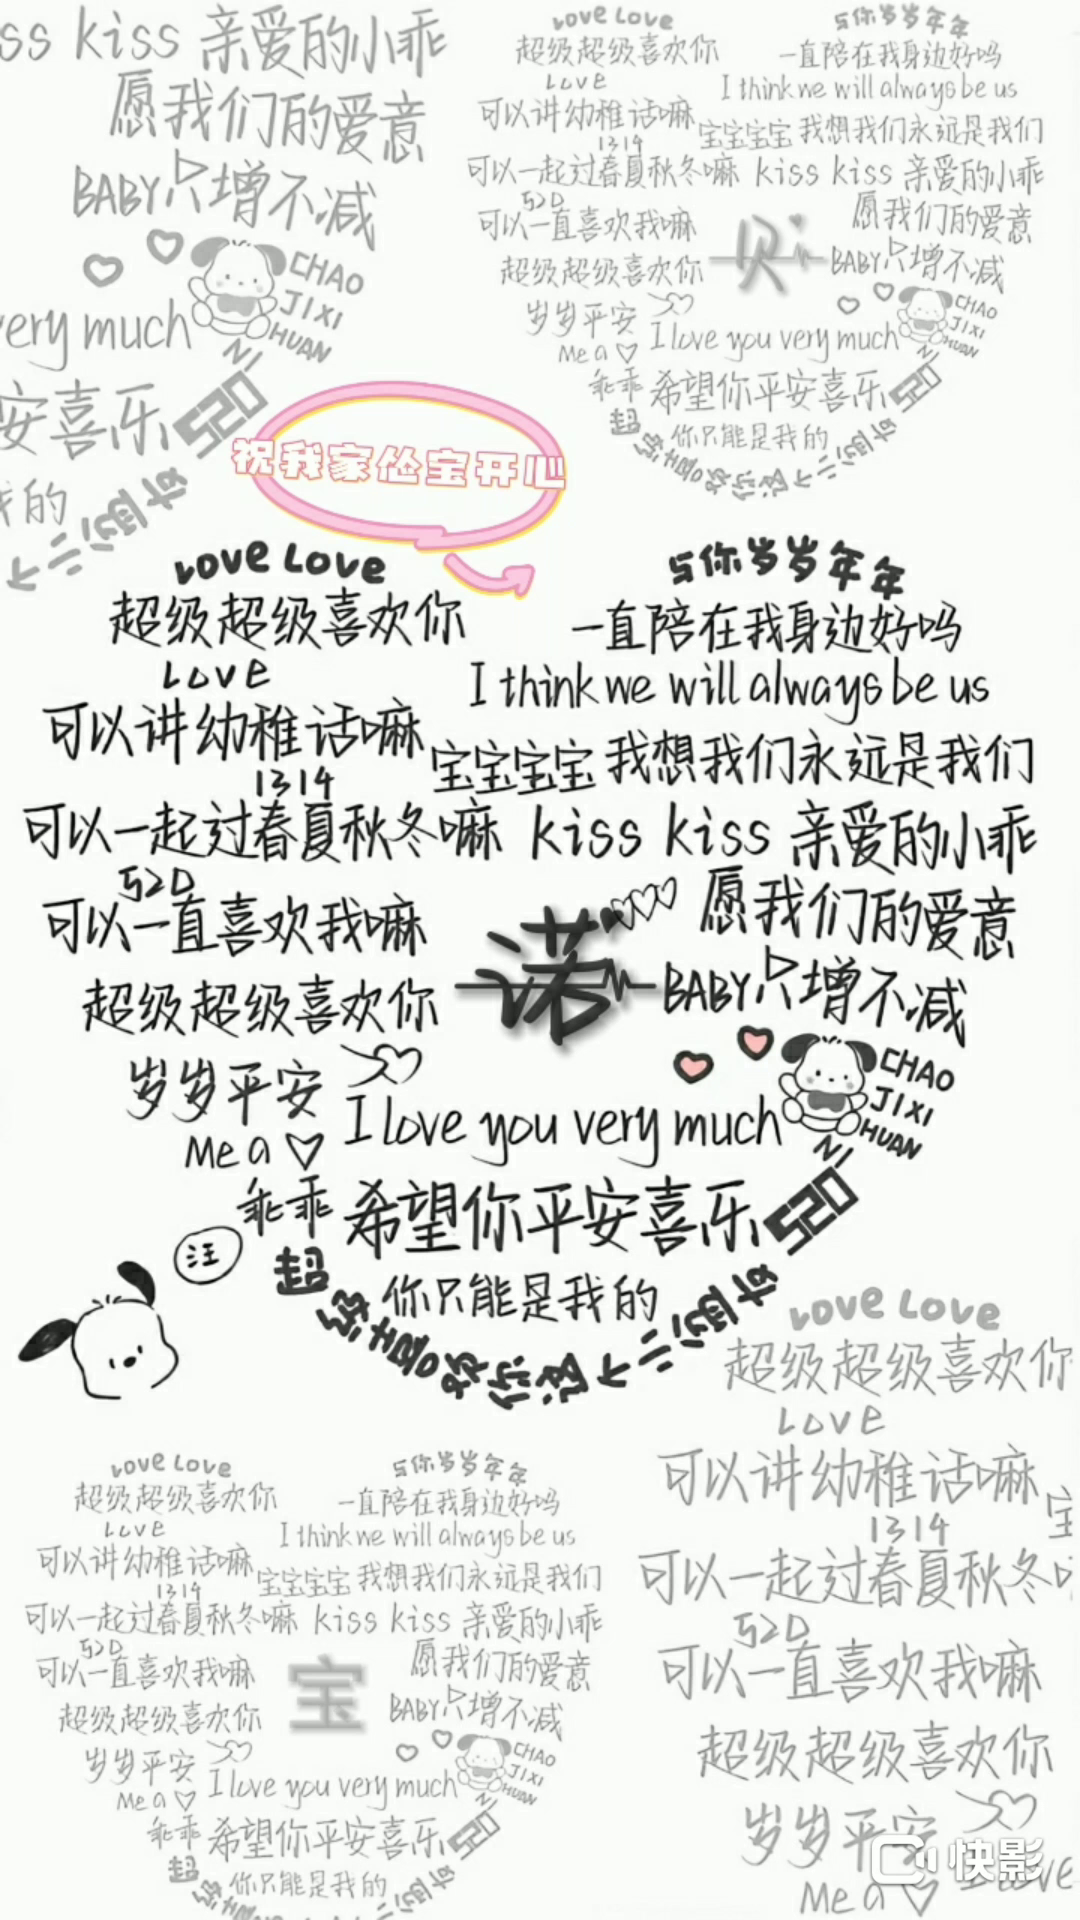 ss kiss 亲爱的小乖
愿我们的爱意
BABY只增不减
CHAO
JIXI
HUAN
NI
very much
安喜乐520
我的
Love Love
与你岁岁年年
超级超级喜欢你
一直陪在我身边好吗
Love
I think we will always be us
可以讲幼稚话嘛
宝宝宝宝 我想我们永远是我们
1314
可以一起过春夏秋冬嘛 kiss kiss 亲爱的小乖
520
愿我们的爱意
可以一直喜欢我嘛
贝
BABY只增不减
超级超级喜欢你
CHAO
JIXI
HUAN
NI
岁岁平安
I love you very much
Me a
乖乖 希望你平安喜乐520
你只能是我的
祝我家怂宝开心
Love Love
与你岁岁年年
超级超级喜欢你
一直陪在我身边好吗
Love
I think we will always be us
可以讲幼稚话嘛
宝宝宝宝 我想我们永远是我们
1314
可以一起过春夏秋冬嘛 kiss kiss 亲爱的小乖
520
愿我们的爱意
可以一直喜欢我嘛
诺
BABY只增不减
超级超级喜欢你
CHAO
JIXI
HUAN
NI
岁岁平安
I love you very much
Me a
乖乖 希望你平安喜乐520
你只能是我的
汪
Love Love
超级超级喜欢你
Love
可以讲幼稚话嘛
宝
1314
可以一起过春夏秋冬
520
可以一直喜欢我嘛
超级超级喜欢你
岁岁平安
I love
Me a
Love Love
与你岁岁年年
超级超级喜欢你
一直陪在我身边好吗
Love
I think we will always be us
可以讲幼稚话嘛
宝宝宝宝 我想我们永远是我们
1314
可以一起过春夏秋冬嘛 kiss kiss 亲爱的小乖
520
愿我们的爱意
可以一直喜欢我嘛
宝
BABY只增不减
超级超级喜欢你
CHAO
JIXI
HUAN
NI
岁岁平安
I love you very much
Me a
乖乖 希望你平安喜乐520
你只能是我的
快影